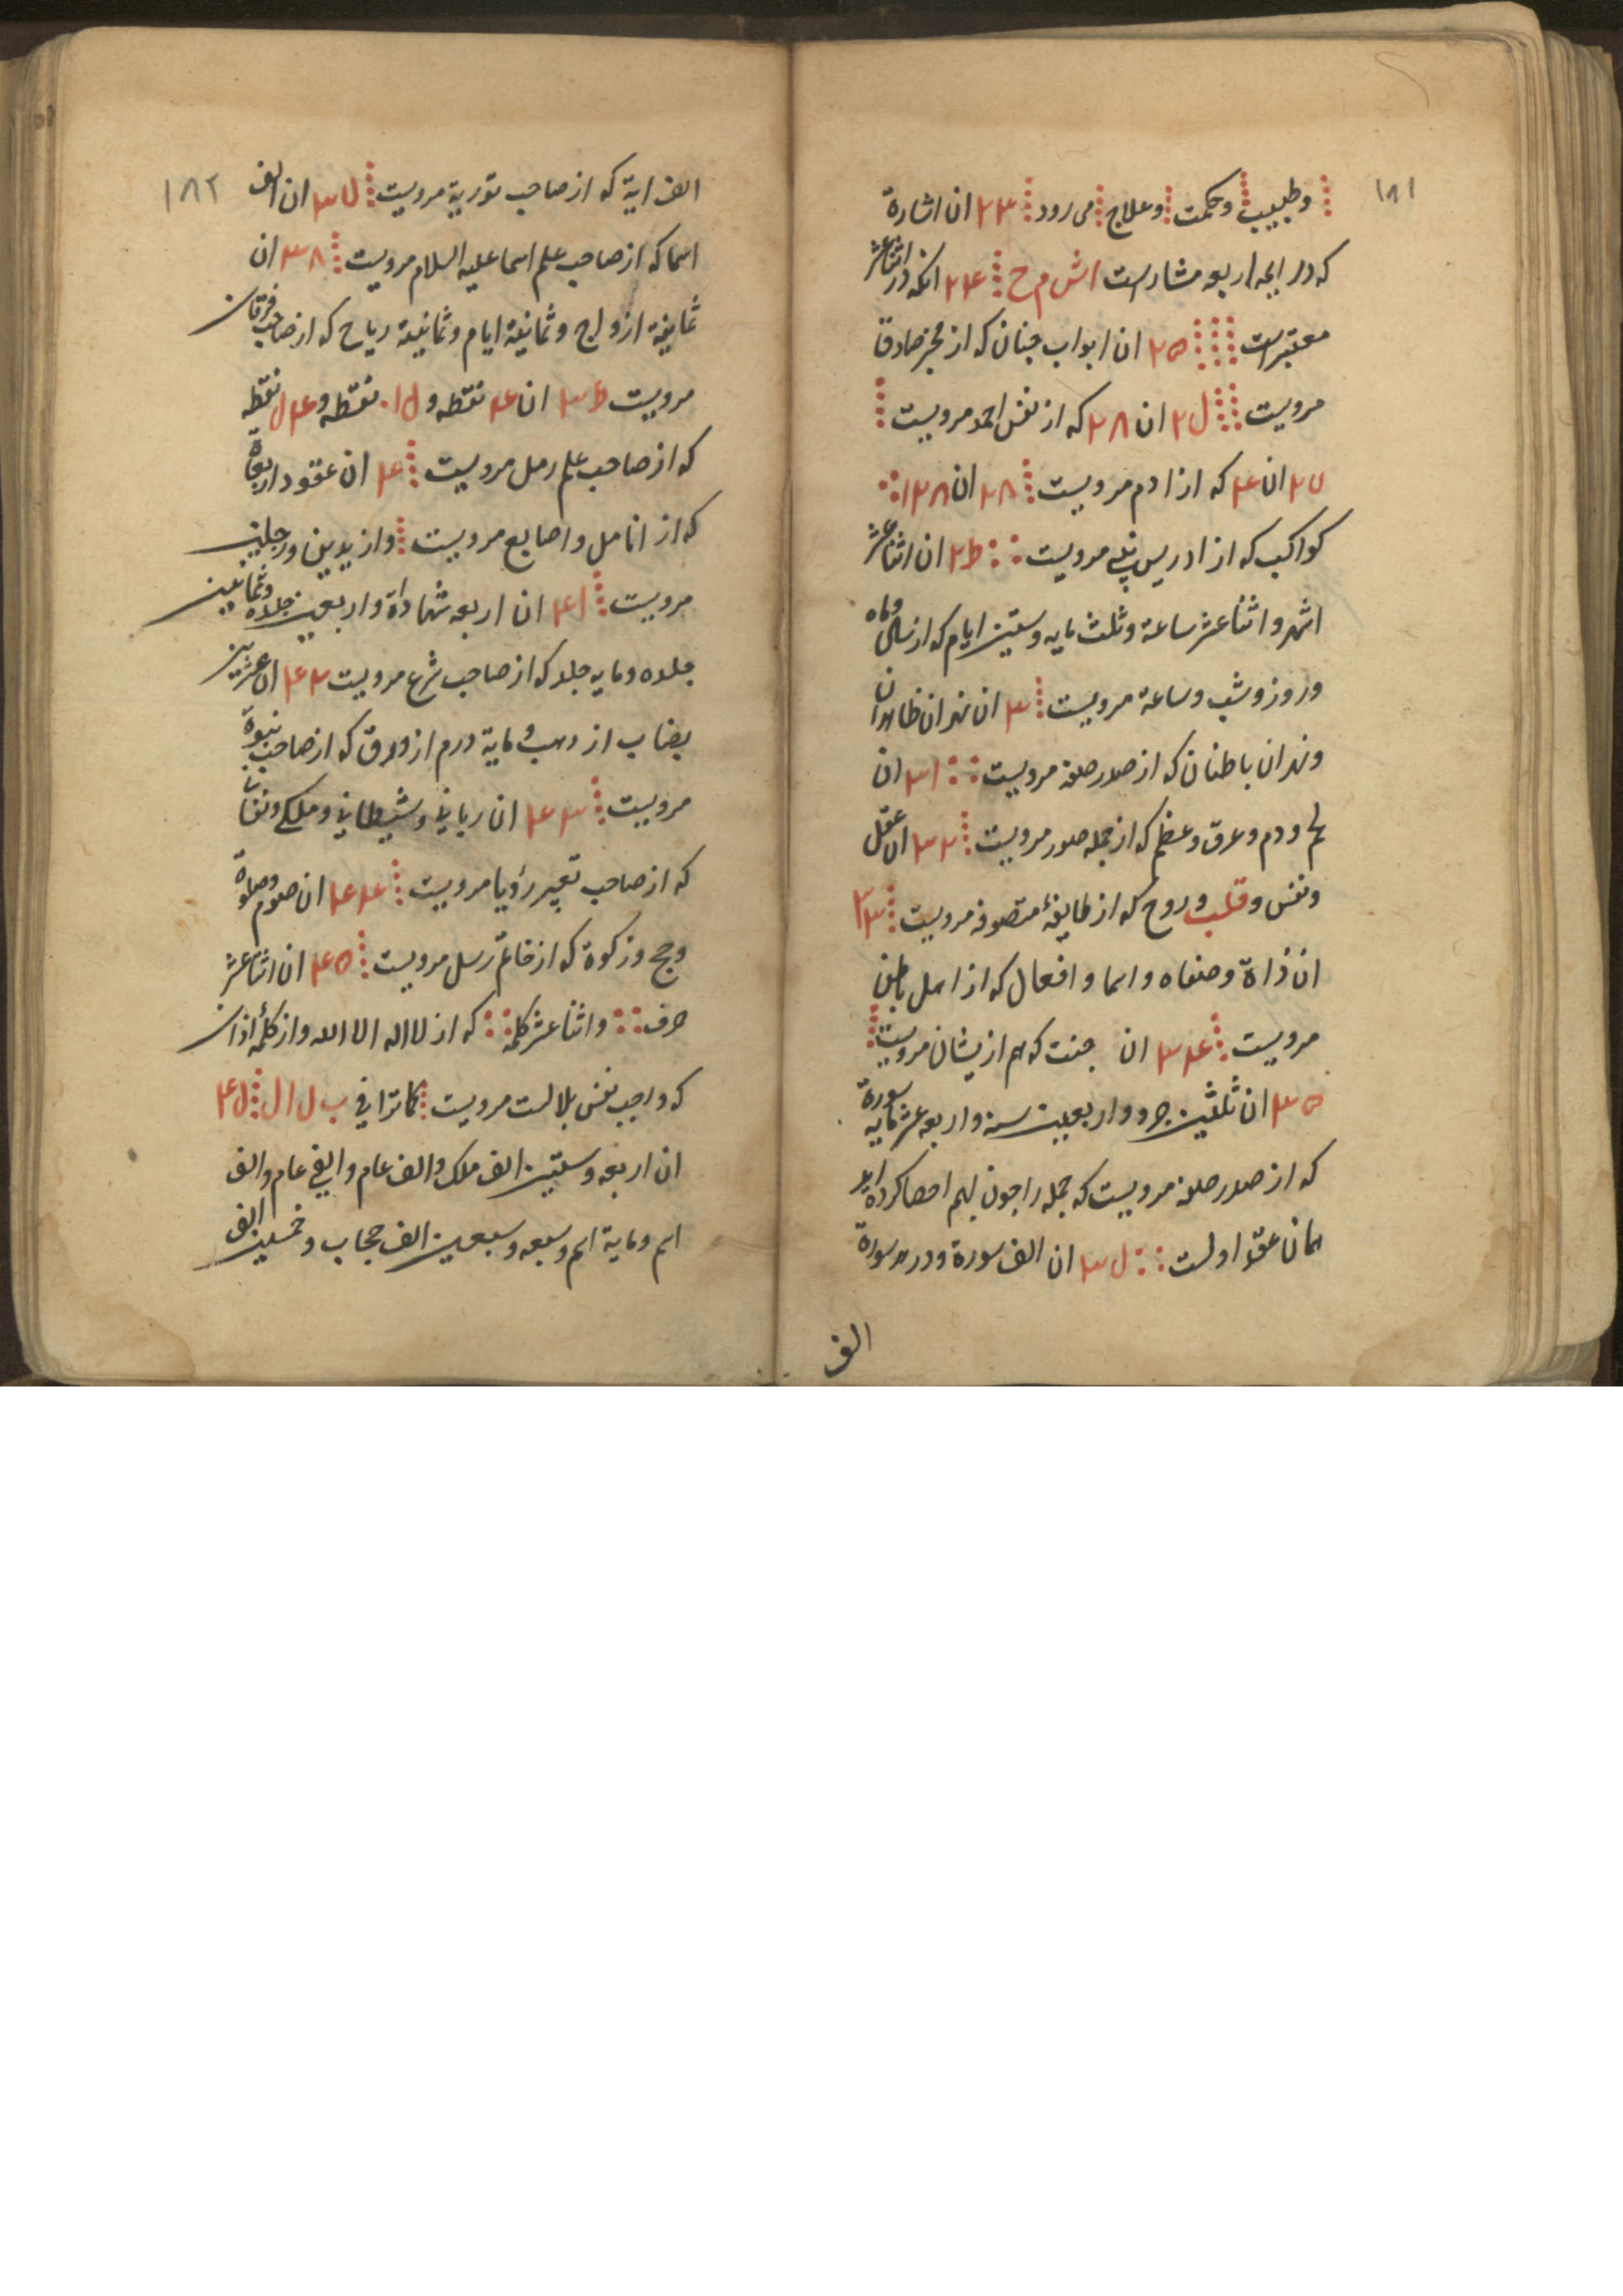 ۱۸۱
وطبیب وحکمت وعلاج می رود ۲۳ ان اشارة
که در ایجه اربعه مشارست اش م ح ۲۴ انکه در اثناعشر
معتبرست ۲۵ ان ابواب جنان که از مخبر صادق
مرویست ل۲ ان ۲۸ که از نفس احمد مرویست
۲۷ ان ۴ که از ادم مرویست ۲۸ ان ۱۲۸
کواکب که از ادریس نبی مرویست ۲ط ان اثناعشر
اشهر و اثناعشر ساعة وثلث مایه وستین ایام که از سال وماه
وروز وشب وساعة مرویست ۳ ان نهران ظاهران
ونهران باطنان که از صدر صفه مرویست ۳۱ ان
لحم ودم وعرق وعظم که از جمله صور مرویست ۳۲ ان عقل
ونفس وقلب وروح که از طایفهٔ متصوفه مرویست ۳۳
ان ذاة وصفاه واسما وافعال که از اهل باطن
مرویست ۳۴ ان جنت که هم ازیشان مرویست
۳۵ ان ثلثین جرو واربعین سنه واربعه عشر مایه سورة
که از صدر صفه مرویست که جمله را جون بهم احصا کرده اید
همان عقد اولست ل۳ ان الف سورة ودر هر سورة
الف
۱۸۲
الف ایة که از صاحب توریة مرویست ۳۷ ان الف
اسما که از صاحب علم اسما علیه السلام مرویست ۳۸ ان
ثمانیة ازواج وثمانیة ایام وثمانیة ریاح که از صاحب فرقان
مرویست ۳ط ان ۴ نقطه و ل۱۰ نقطه و ۴ل نقطه
که از صاحب علم رمل مرویست ۴ ان عقود اربعة
که از انامل واصابع مرویست واز یدین ورجلین
مرویست ۴۱ ان اربعه شهاداة واربعین جلده وثمانین
جلده ومایه جلد که از صاحب شرع مرویست ۴۲ ان عشرین
نصاب از ذهب ومایة درم از ورق که از صاحب نبوة
مرویست ۴۳ ان ربانی وشیطانی وملکی ونفسانی
که از صاحب تعبیر رؤیا مرویست ۴۴ ان صوم وصلوة
وحج وزکوة که از خاتم رسل مرویست ۴۵ ان اثناعشر
حرف واثناعشر کلمه که از لا اله الا الله واز کلمهٔ اذان
که واجب نفس بلالست مرویست کما ترا فی ب ل ا ل ۴ل
ان اربعه وستین الف ملک والف عام والفی عام والف
اسم ومایة اسم وسبعه وسبعین الف حجاب وخمسین الف